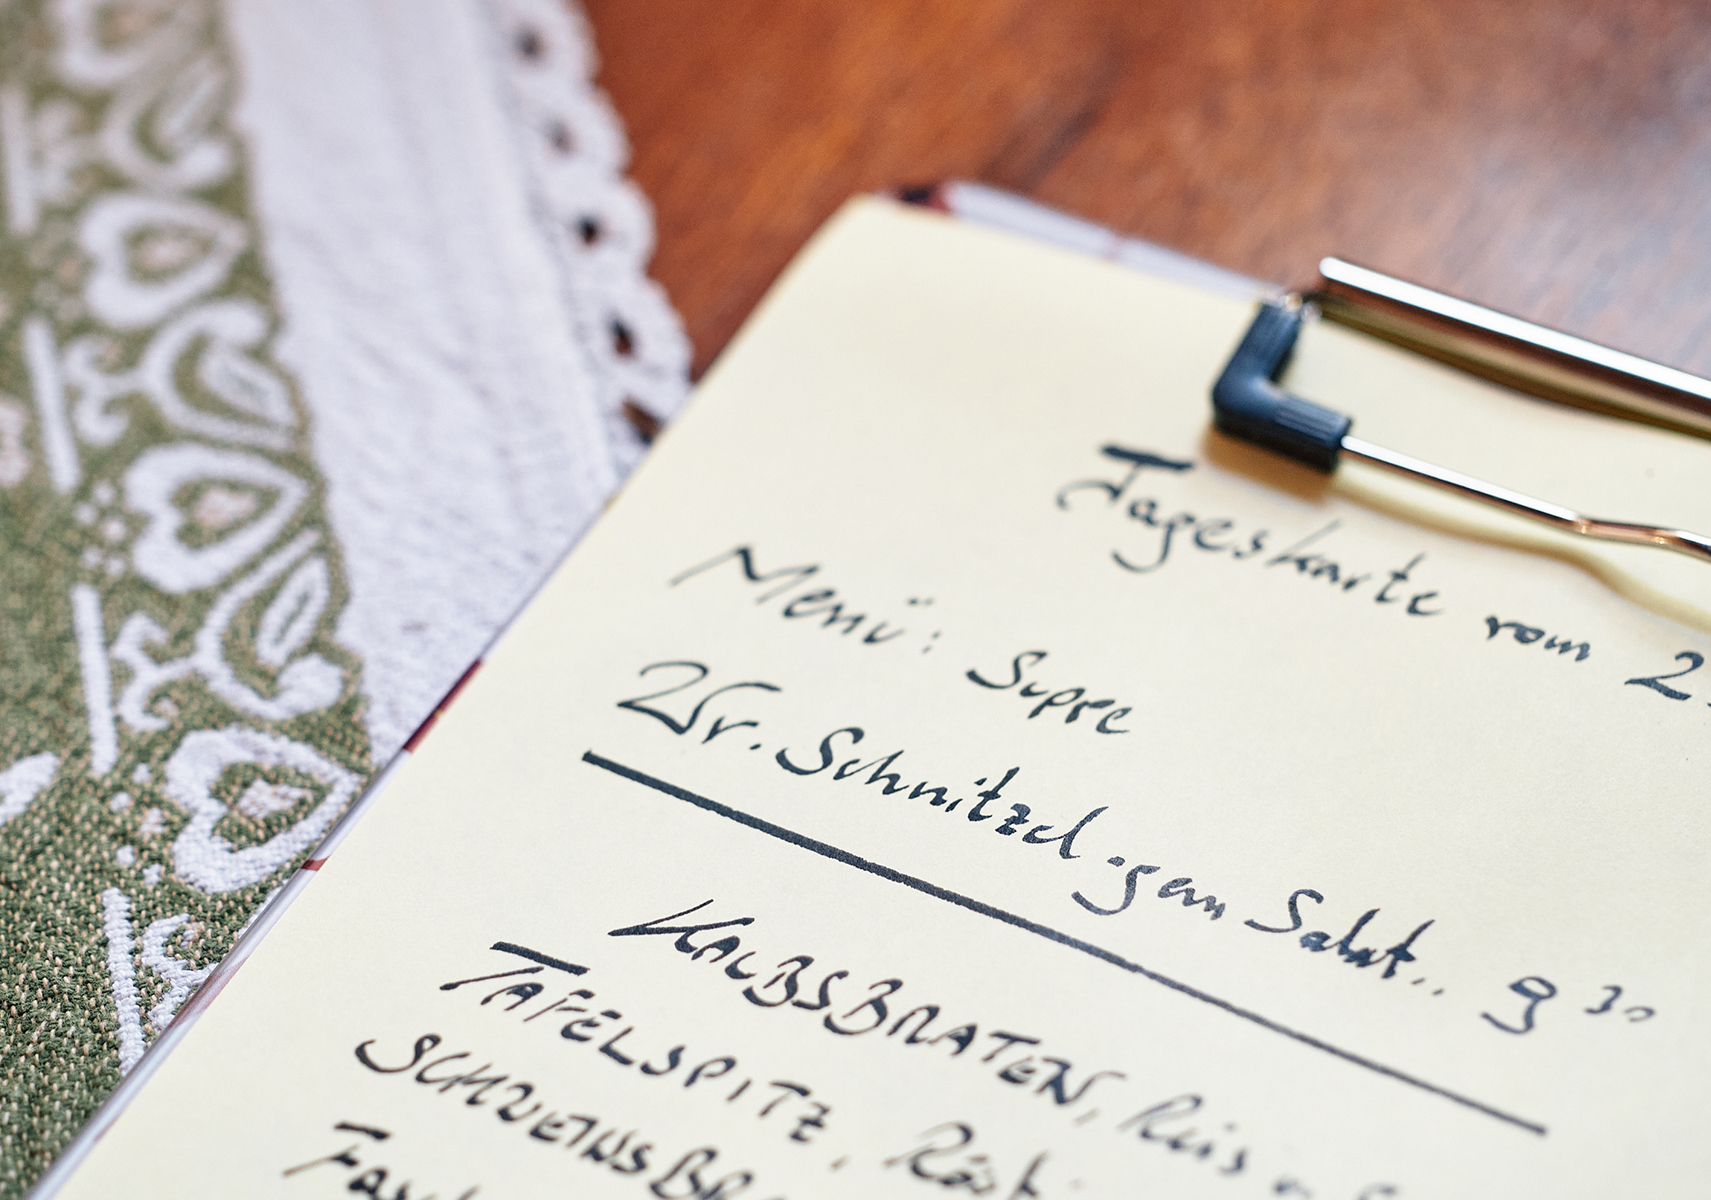 Tageskarte vom 2.
Menü: Suppe
Wr. Schnitzel gem Salat.. 9 30
KALBSBRATEN, Reis
TAFELSPITZ, Rösti
SCHWEINSBRA